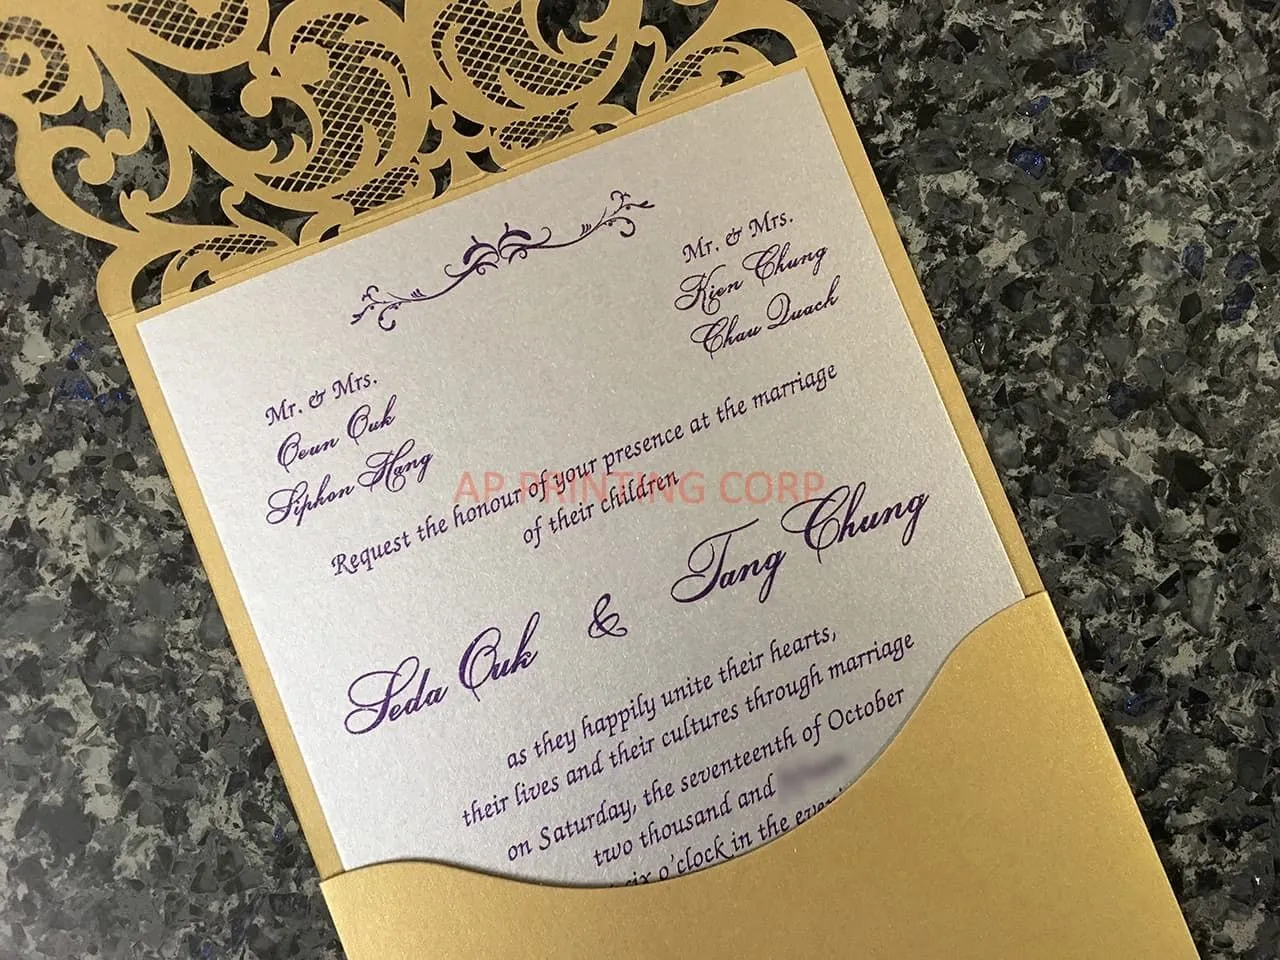 Mr. & Mrs.
Kien Chung
Chau Quach
Mr. & Mrs.
Oeun Ouk
Siphon Hang
Request the honour of your presence at the marriage
of their children
AP PRINTING CORP
Seda Ouk & Tang Chung
as they happily unite their hearts,
their lives and their cultures through marriage
on Saturday, the seventeenth of October
two thousand and
six o'clock in the